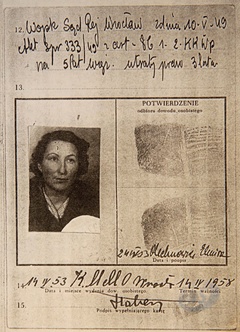 12. Wojsk Sąd Rej Wrocław z dnia 10-V-49
Akt Spr 333/49 z art-86 1-2-KKWP
na 5 lat wię. utraty praw 3 lata
13.
POTWIERDZENIE
odbioru dowodu osobistego
24 IV 53
Data i podpis
14. 14 IV 53 K. M M O Wrocł 14 IV 1958
Data i miejsce wydania dow. osobistego Termin ważności
15.
Podpis wypełniającego kartę